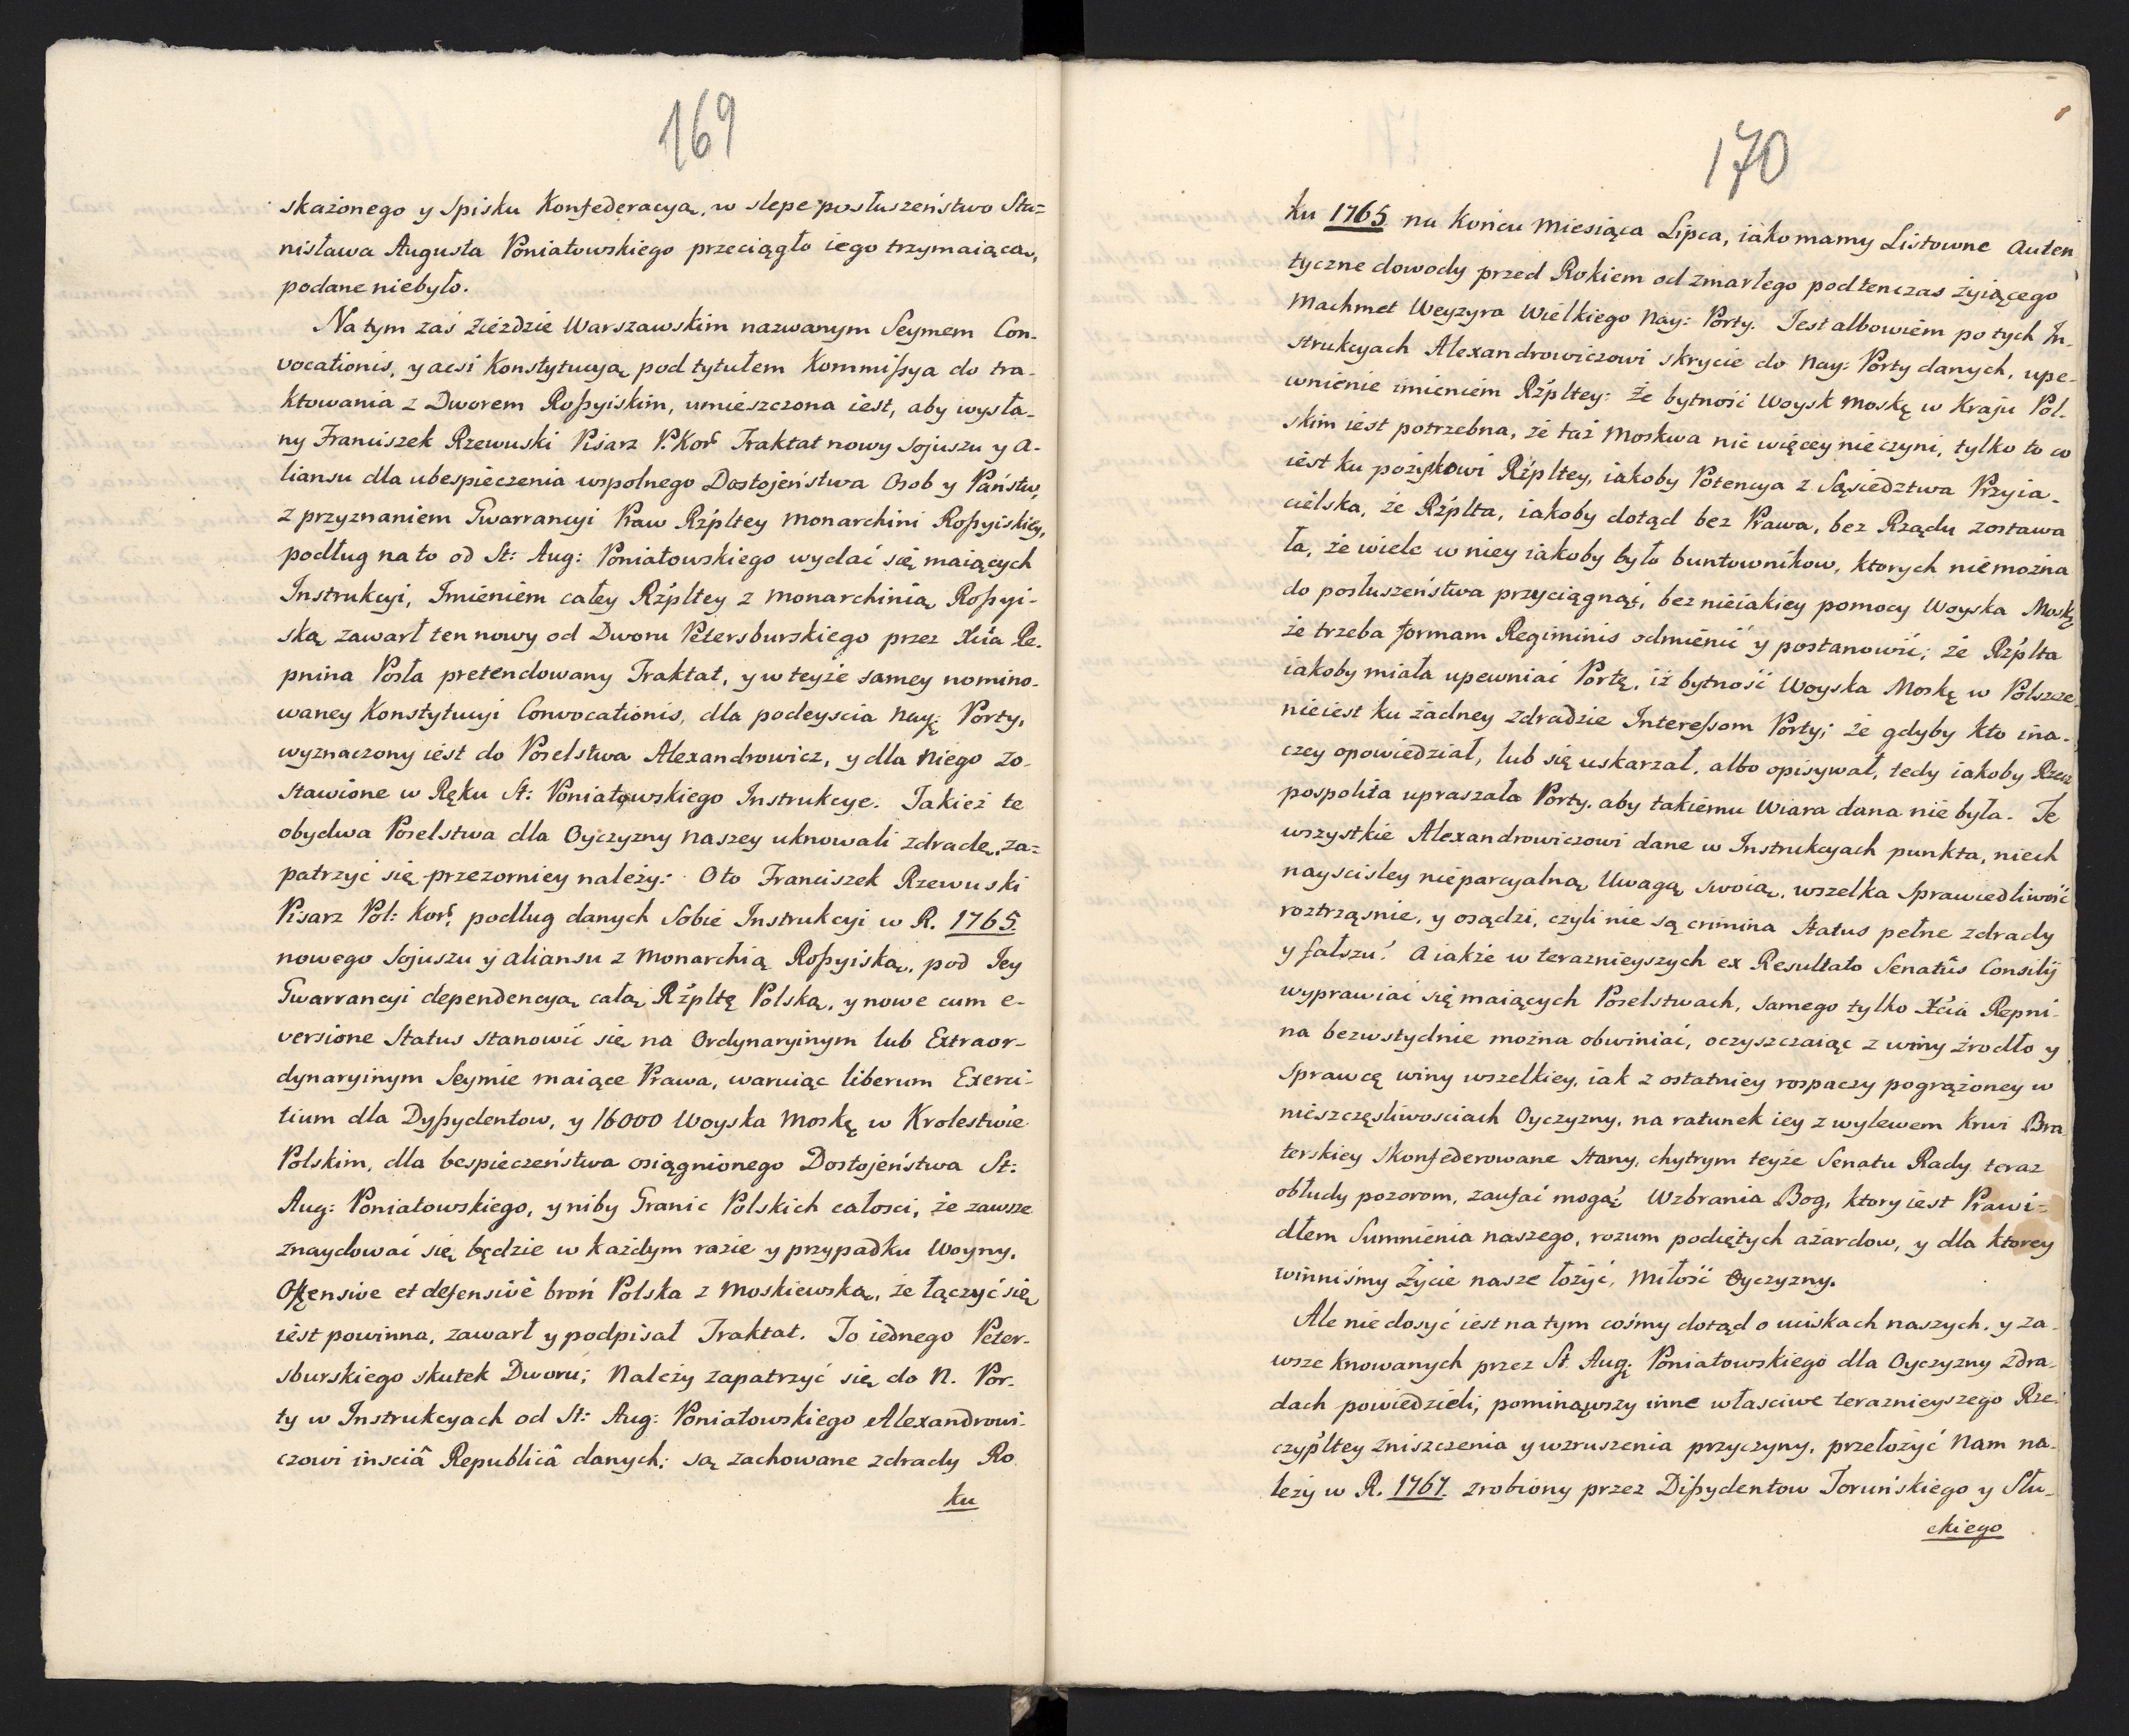 169
skażonego y Spisku Konfederacyą, w slepe posłuszeństwo Sta=
nisława Augusta Poniatowskiego przeciągło iego trzymaiącą,
podane niebyło.
Na tym zaś Zieździe Warszawskim nazwanym Seymem Con-
vocationis, y acsi Konstytucyą pod tytułem Kommißya do tra-
ktowania z Dworem Roßyiskim, umieszczona iest, aby wysła-
ny Franciszek Rzewuski Pisarz P. Korr Traktat nowy sojuszu y a-
liansu dla ubespieczenia wspolnego Dostojeństwa Osob y Państw,
z przyznaniem Gwarrancyi Praw Rzpltey Monarchini Roßyiskiey,
podług na to od St: Aug: Poniatowskiego wydać się maiących
Instrukcyi, Imieniem całey Rzpltey z Monarchinią Roßyi-
ską zawarł ten nowy od Dworu Petersburskiego przez Xcia Re-
pnina Posła pretendowany Traktat, y w teyże samey nomino-
waney Konstytucyi Convocationis, dla podeyscia Nayę Porty,
wyznaczony iest do Poselstwa Alexandrowicz, y dla Niego zo-
stawione w Ręku St: Poniatowskiego Instrukcye. Jakież te
obydwa Poselstwa dla Oyczyzny naszey uknowali zdradę, za=
patrzyć się przezorniey należy: Oto Franciszek Rzewuski
Pisarz Pol: Korr, podług danych Sobie Instrukcyi w R. 1765.
nowego Sojuszu y aliansu z Monarchią Roßyiską, pod Jey
Gwarrancyi dependencyą całą Rzpltę Polską, y nowe cum e-
versione Status stanowić się na Ordynaryinym lub Extraor-
dynaryinym Seymie maiące Prawa, waruiąc liberum Exerci-
tium dla Dyßydentow, y 16000 Woyska Moskę w Krolestwie
Polskim, dla bespieczeństwa osiągnionego Dostojeństwa St:
Aug: Poniatowskiego, y niby Granic Polskich całosci, że zawsze
znaydować się będzie w każdym razie y przypadku Woyny,
Ofensive et defensive broń Polska z Moskiewską, że łączyć się
iest powinna, zawarł y podpisał Traktat. To iednego Peter-
sburskiego skutek Dworu; Należy zapatrzyć się do N. Por-
ty w Instrukcyach od St: Aug: Poniatowskiego Alexandrowi-
czowi insciâ Republicâ danych; są zachowane zdrady Ro
ku
170
ku 1765 na końcu Miesiąca Lipca, iako mamy Listowne Auten
tyczne dowody przed Rokiem od zmarłego podtenczas żyiącego
Machmet Weyzyra Wielkiego Nay: Porty. Jest albowiem po tych In-
strukcyach Alexandrowiczowi skrycie do Nay: Porty danych, upe-
wnienie imieniem Rzpltey: że bytność Woysk Moskę w Kraju Pol-
skim iest potrzebna, że taż Moskwa nic więcey nieczyni, tylko to co
iest ku pożytkowi Rzpltey, iakoby Potencya z Sąsiedztwa Przyia-
cielska, że Rzplta, iakoby dotąd bez Prawa, bez Rządu zostawa
ła, że wiele w niey iakoby było buntownikow, ktorych niemożna
do posłuszeństwa przyciągnąć, bez nieiakiey pomocy Woyska Moskę
że trzeba formam Regiminis odmienić y postanowić; że Rzplta
iakoby miała upewniać Portę, iż bytność Woyska Moskę w Polszcze
nieiest ku żadney zdradzie Intereßom Porty; że gdyby kto ina-
czey opowiedział, lub się uskarzał, albo opisywał, tedy iakoby Rzecz
pospolita upraszała Porty, aby takiemu Wiara dana nie była. Te
wszystkie Alexandrowiczowi dane w Instrukcyach punkta, niech
nayscisley nieparcyalną Uwagą swoią, wszelka Sprawiedliwość
roztrząsnie, y osądzi, czyli nie są crimina Status pełne zdrady
y fałszu? A iakże w teraznieyszych ex Resultato Senatûs Consilij
wyprawiać się maiących Poselstwach, samego tylko Xcia Repni-
na bezwstydnie można obwiniać, oczyszczaiąc z winy źrodło y
Sprawcę winy wszelkiey, iak z ostatniey rospaczy pogrążoney w
nieszczęsliwosciach Oyczyzny, na ratunek iey z wylewem Krwi Bra
terskiey Skonfederowane Stany, chytrym teyże Senatu Rady teraz
obłudy pozorom, zaufać mogą? Wzbrania Bog, ktory iest Prawi=
dłem Sumnienia naszego, rozum podiętych ażardow, y dla ktorey
winniśmy Życie nasze łożyć, Miłość Oyczyzny.
Ale nie dosyć iest na tym cośmy dotąd o uciskach naszych, y za-
wsze knowanych przez St. Aug: Poniatowskiego dla Oyczyzny zdra-
dach powiedzieli, pominąwszy inne własciwe teraznieyszego Rze
czypltey zniszczenia y wzruszenia przyczyny, przełożyć Nam na-
leży w R. 1767. zrobiony przez Dißydentow Toruńskiego y Słu-
ckiego